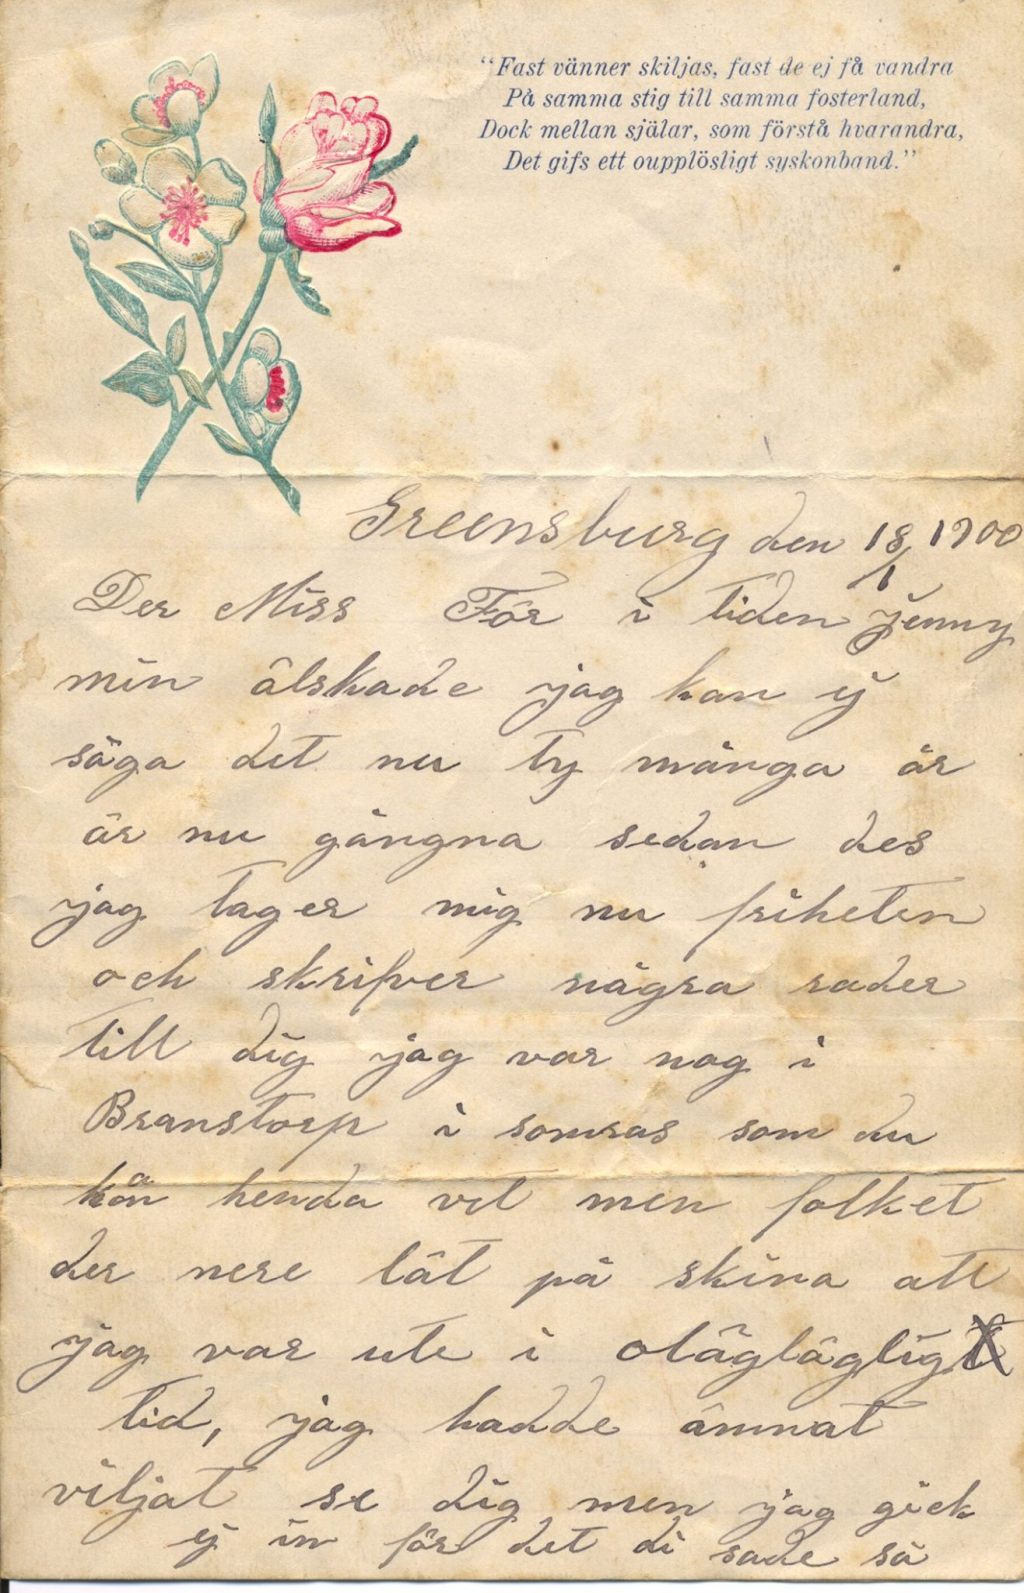 “Fast vänner skiljas, fast de ej få vandra
På samma stig till samma fosterland,
Dock mellan själar, som förstå hvarandra,
Det gifs ett oupplösligt syskonband.”
Greensburg den 18/1 1900
Der Miss För i tiden Jenny
min älskade jag kan ej
säga det nu ty många år
är nu gångna sedan des
jag tager mig nu friheten
och skrifver några rader
till dig jag var nog i
Branstorp i somras som du
kan henda vet men folket
der nere lät på skina att
jag var ute i oläglägligt
tid, jag hadde ämnat
viljat se dig men jag gick
ej in för det di sade så